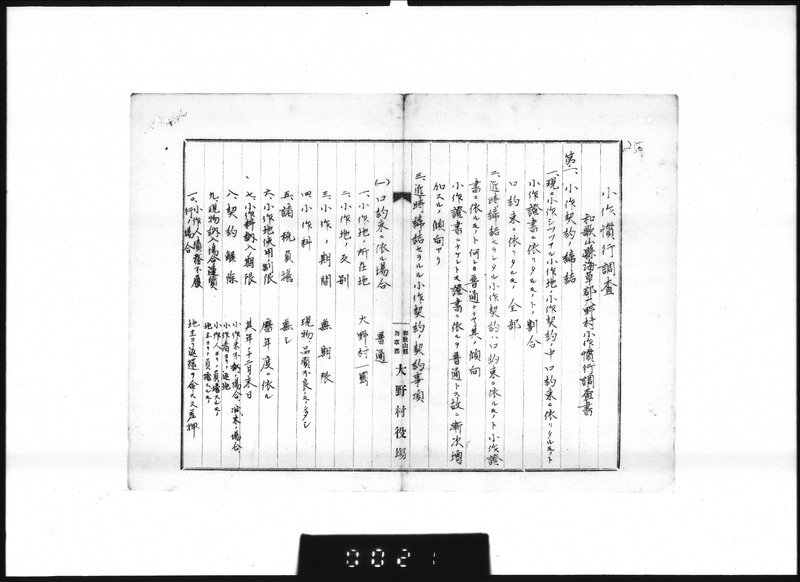 250
小作慣行調査
和歌山縣海草郡大野村小作慣行調査書
第一、小作契約ノ締結
一、現ニ小作シツツアル小作地ノ小作契約ノ中口約束ニ依リタルモノト
小作證書ニ依リタルモノトノ割合
口約束ニ依リタルモノ 全部
二、近時締結セラレタル小作契約ハ口約束ニ依ルモノト小作證
書ニ依ルモノト何レカ普通ナリヤ其ノ傾向
小作證書ニナケレトモ證書ニ依ルヲ普通トス故ニ漸次増
加スルノ傾向アリ
三、近時締結セラルル小作契約ノ契約事項
(一)口約束ニ依ル場合 普通
和歌山縣海草郡 大野村役場
一、小作地所在地 大野村一圓
二、小作地ノ反別
三、小作ノ期間 無期限
四、小作料 現物品質不良ノモノナシ
五、諸税負擔 無シ
六、小作地使用制限 暦年度ニ依ル
七、小作料納入期限 其年十二月末日
八、契約解除 小作米不納ノ場合、減米ノ場合
小作者ヨリ返地
九、現物納入場合運賃 小作人ヨリ負擔スルモノ
地主ヨリ負擔ルモノ
一〇、小作人債務不履行ノ場合 地主ヨリ返還ヲ命ス
0021